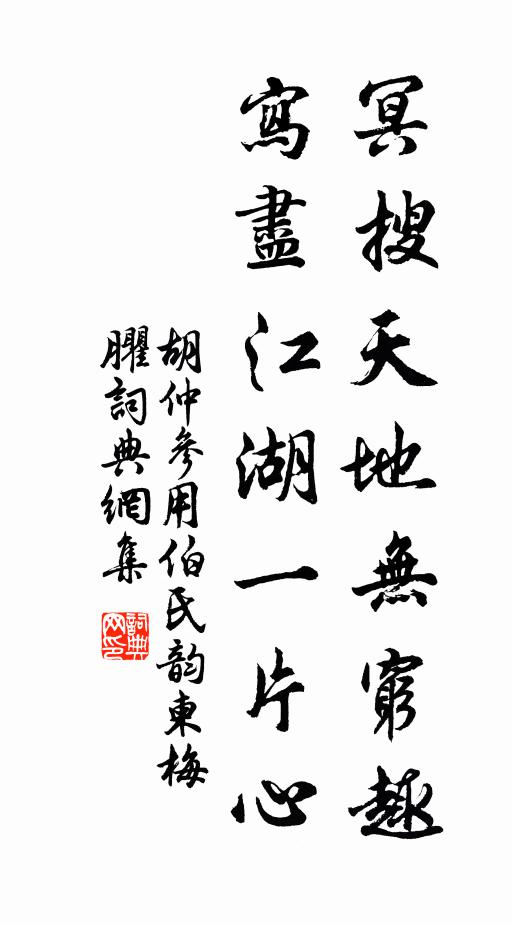 冥搜天地無窮趣
寫盡江湖一片心
胡仲參用伯氏韵東梅
臞詞典網集
詞典
网印